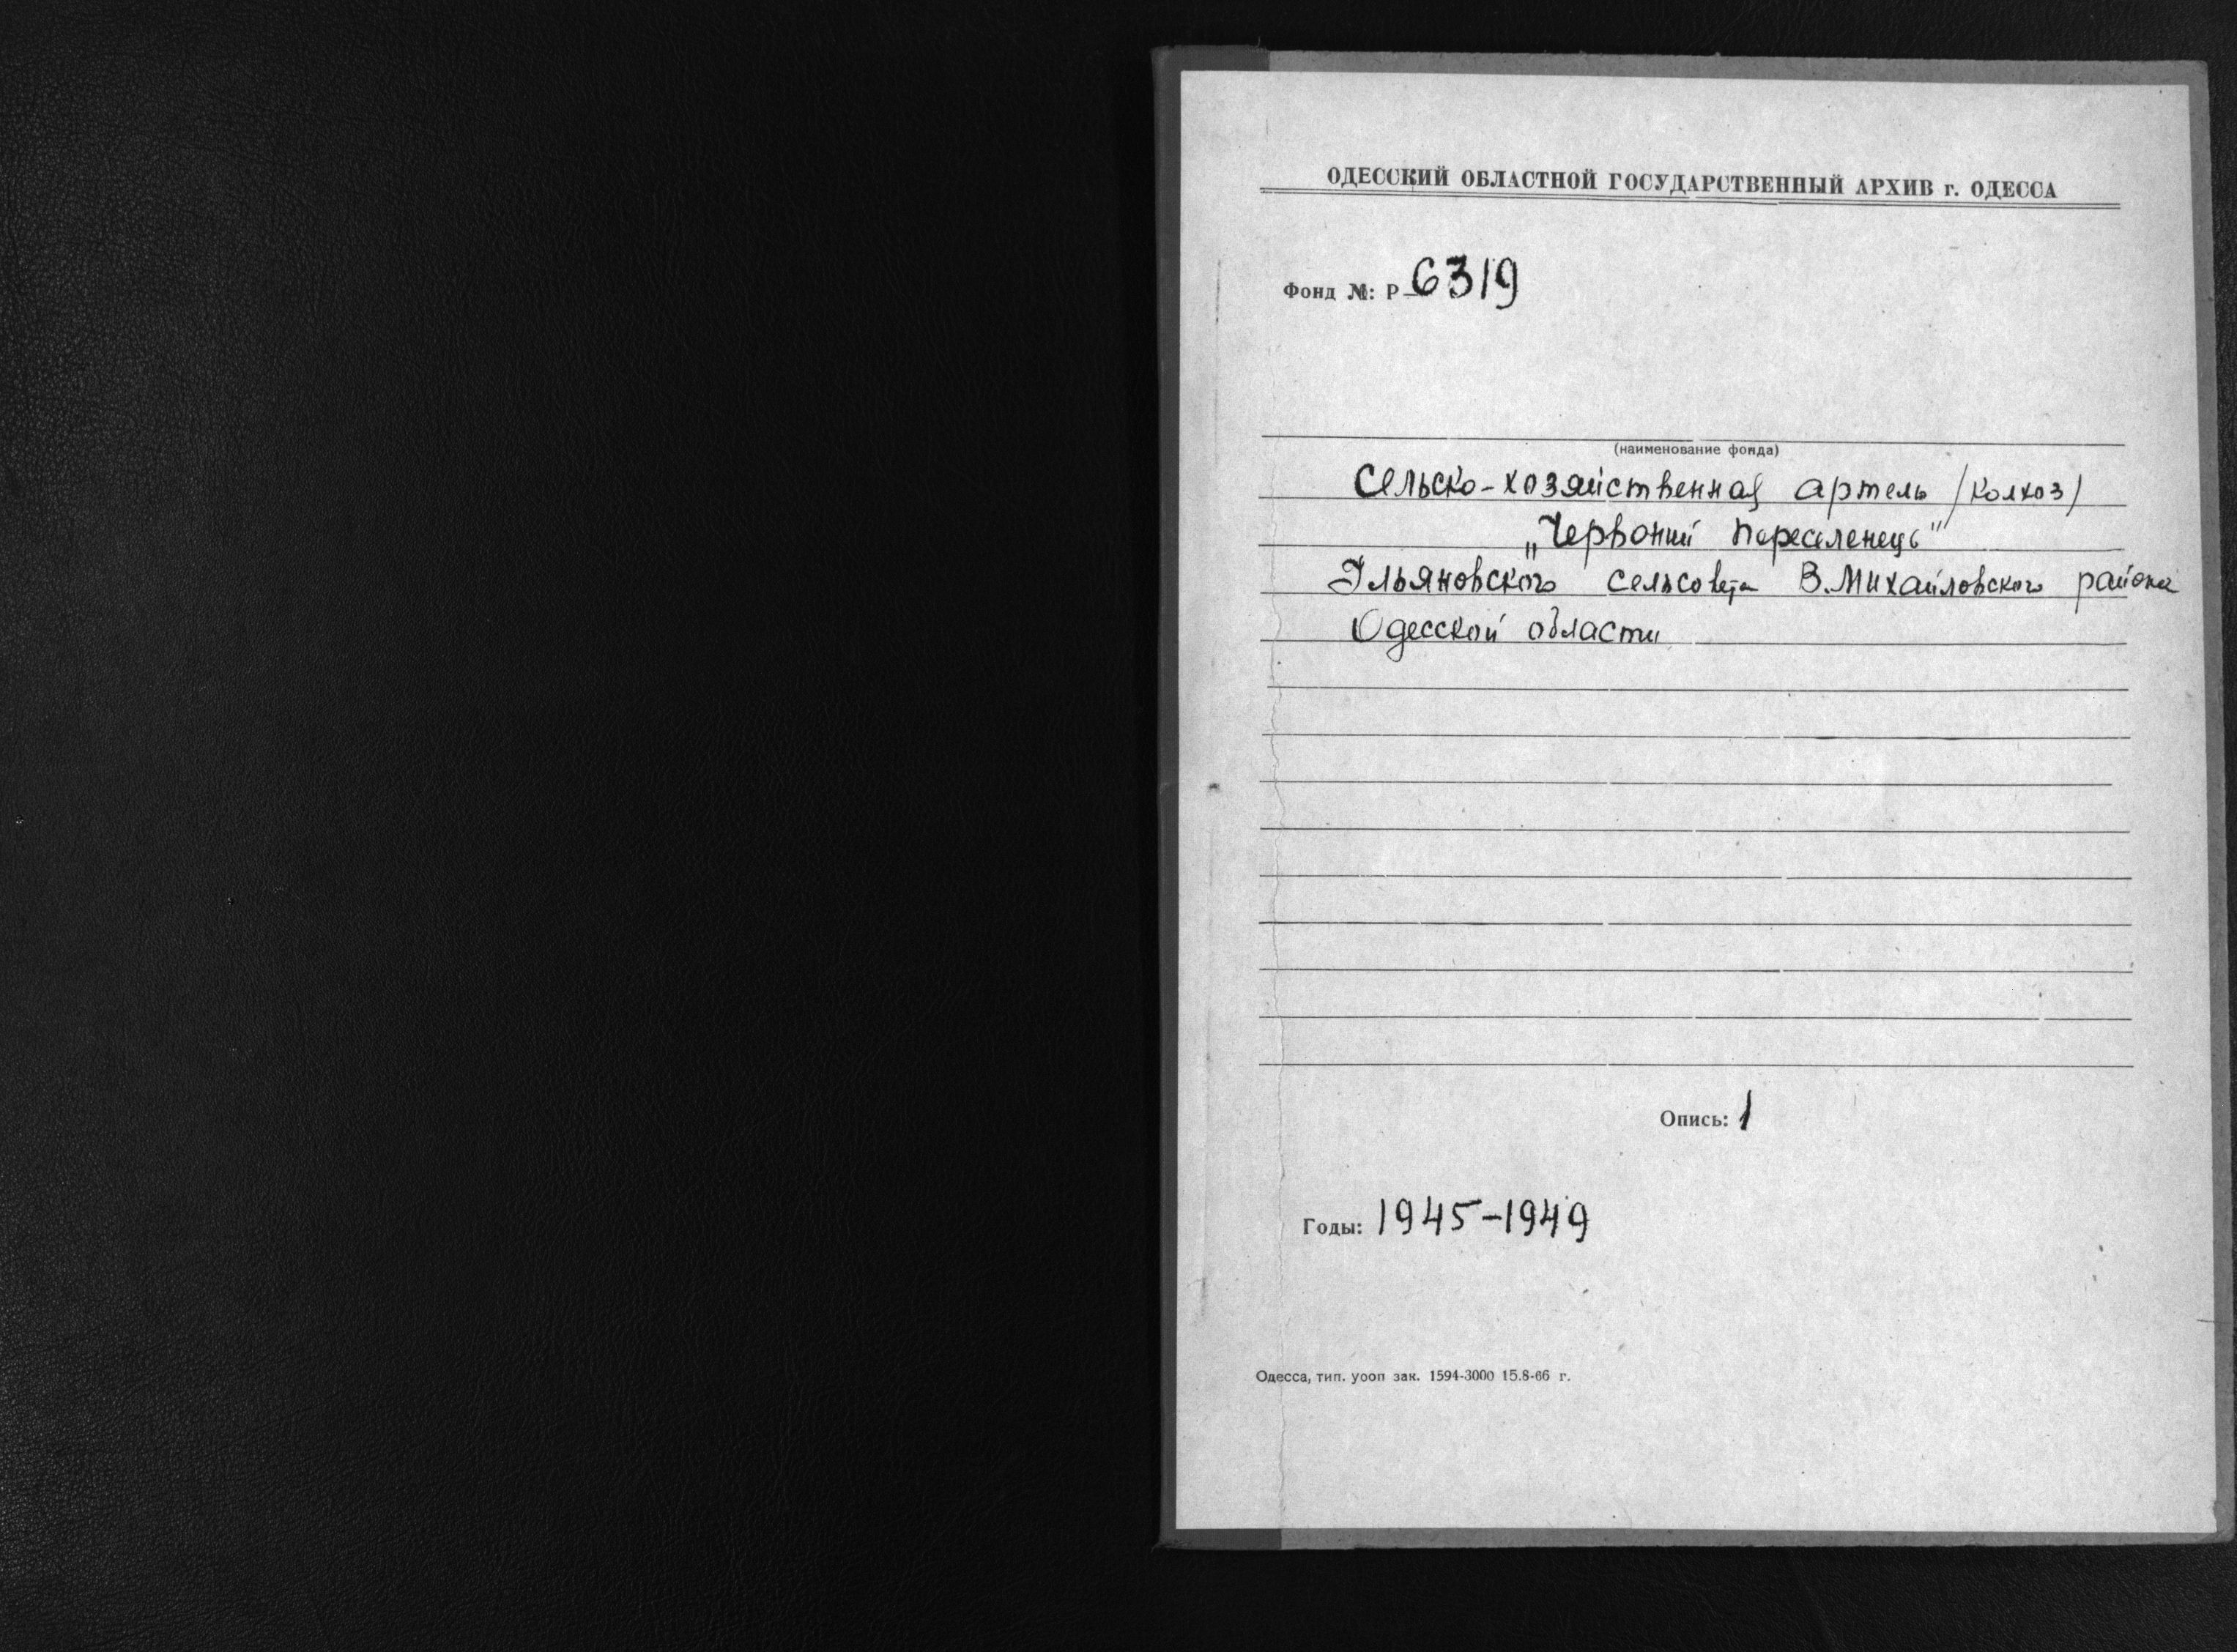 ОДЕССКИЙ ОБЛАСТНОЙ ГОСУДАРСТВЕННЫЙ АРХИВ г. ОДЕССА
Фонд №: Р-6319
(наименование фонда)
Сельско-хозяйственная артель /колхоз/
„Червоний переселенець"
Ульяновского сельсовета В.Михайловского района
Одесской области
Опись: 1
Годы: 1945-1949
Одесса, тип. уооп зак. 1594-3000 15.8-66 г.